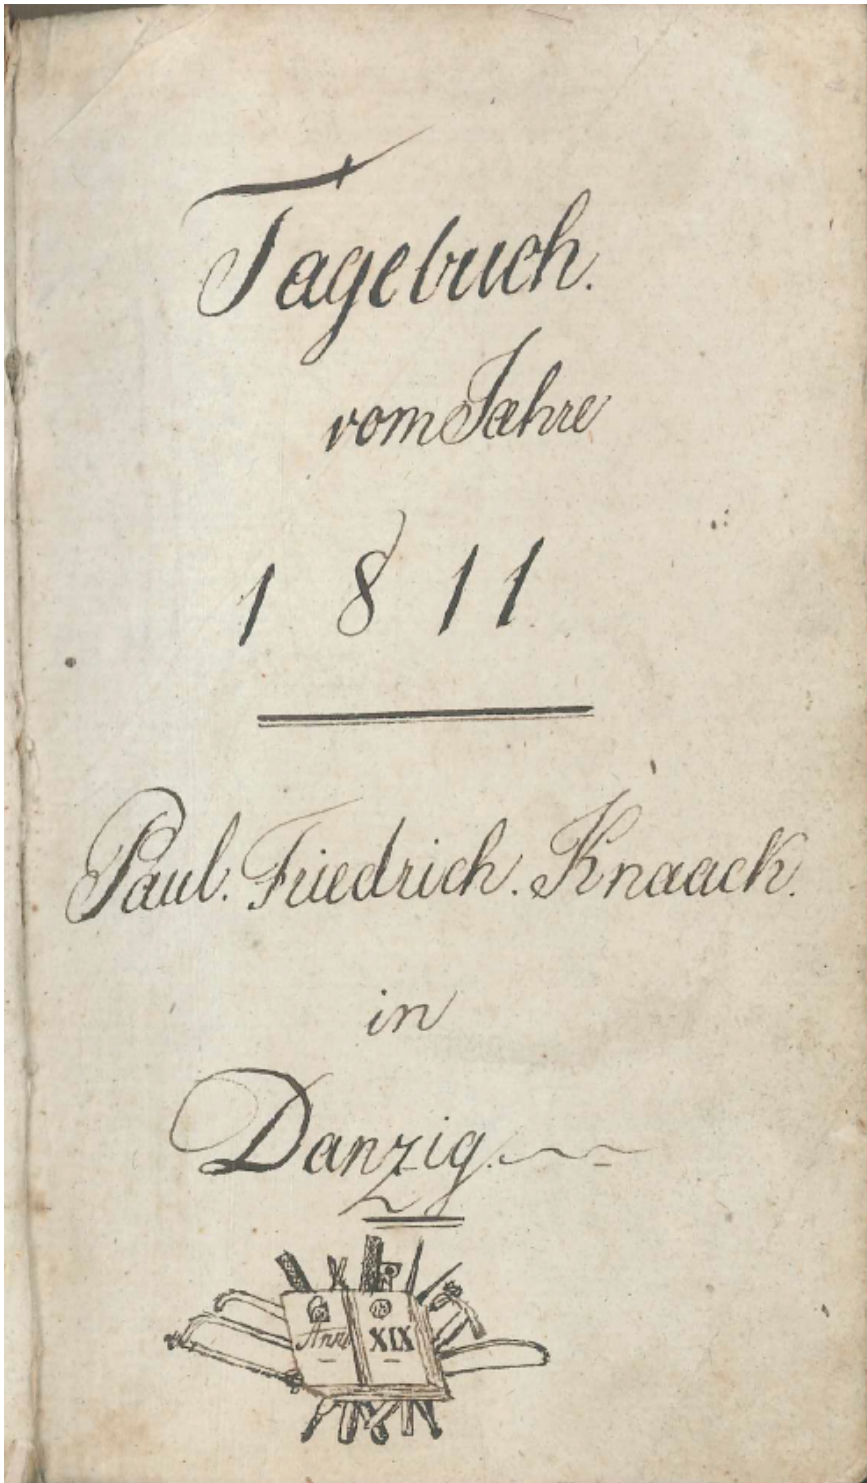 Tagebuch.
vom Jahre
1811
Paul. Friedrich. Knaack.
in
Danzig.
XIX